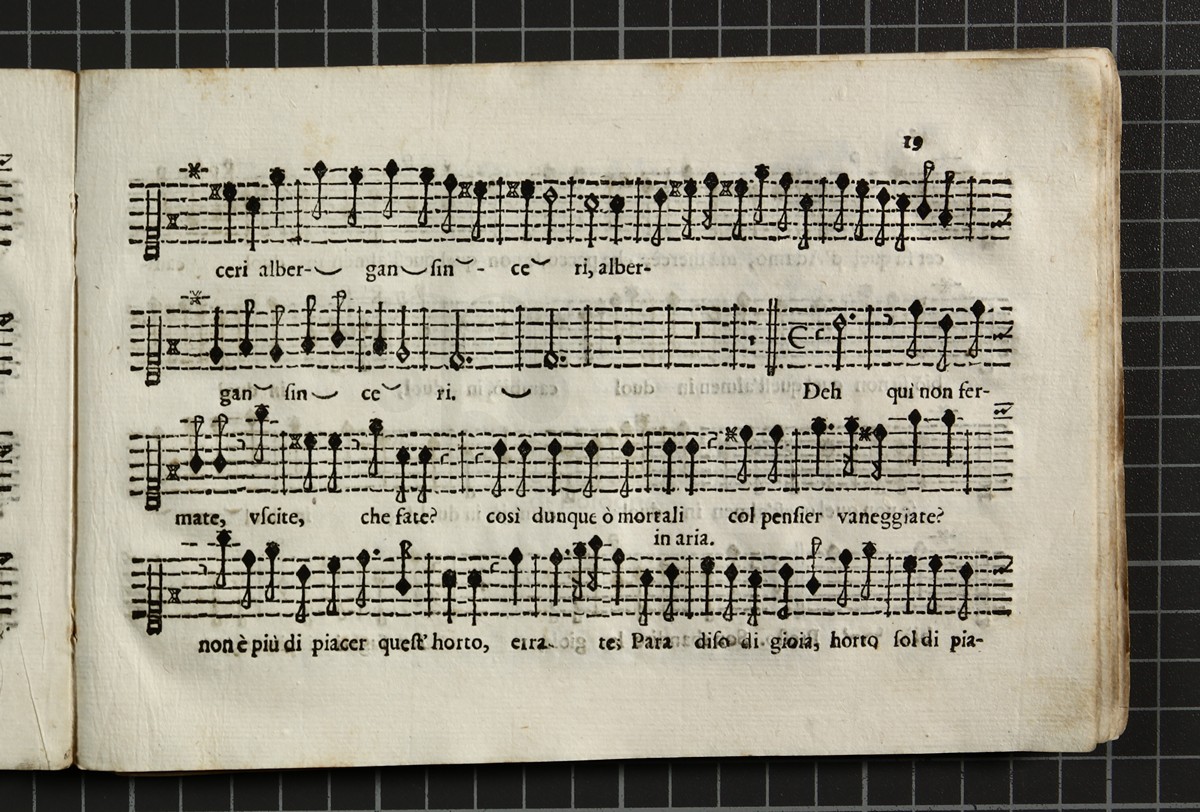 19
ceri alber- gan sin - ce ri, alber-
gan sin ce ri. Deh qui non fer-
mate, vſcite, che fate? così dunque ò mortali col penſier vaneggiate?
in aria.
non è più di piacer queſt' horto, erra- te; Para diſo di gioia, horto ſol di pia-